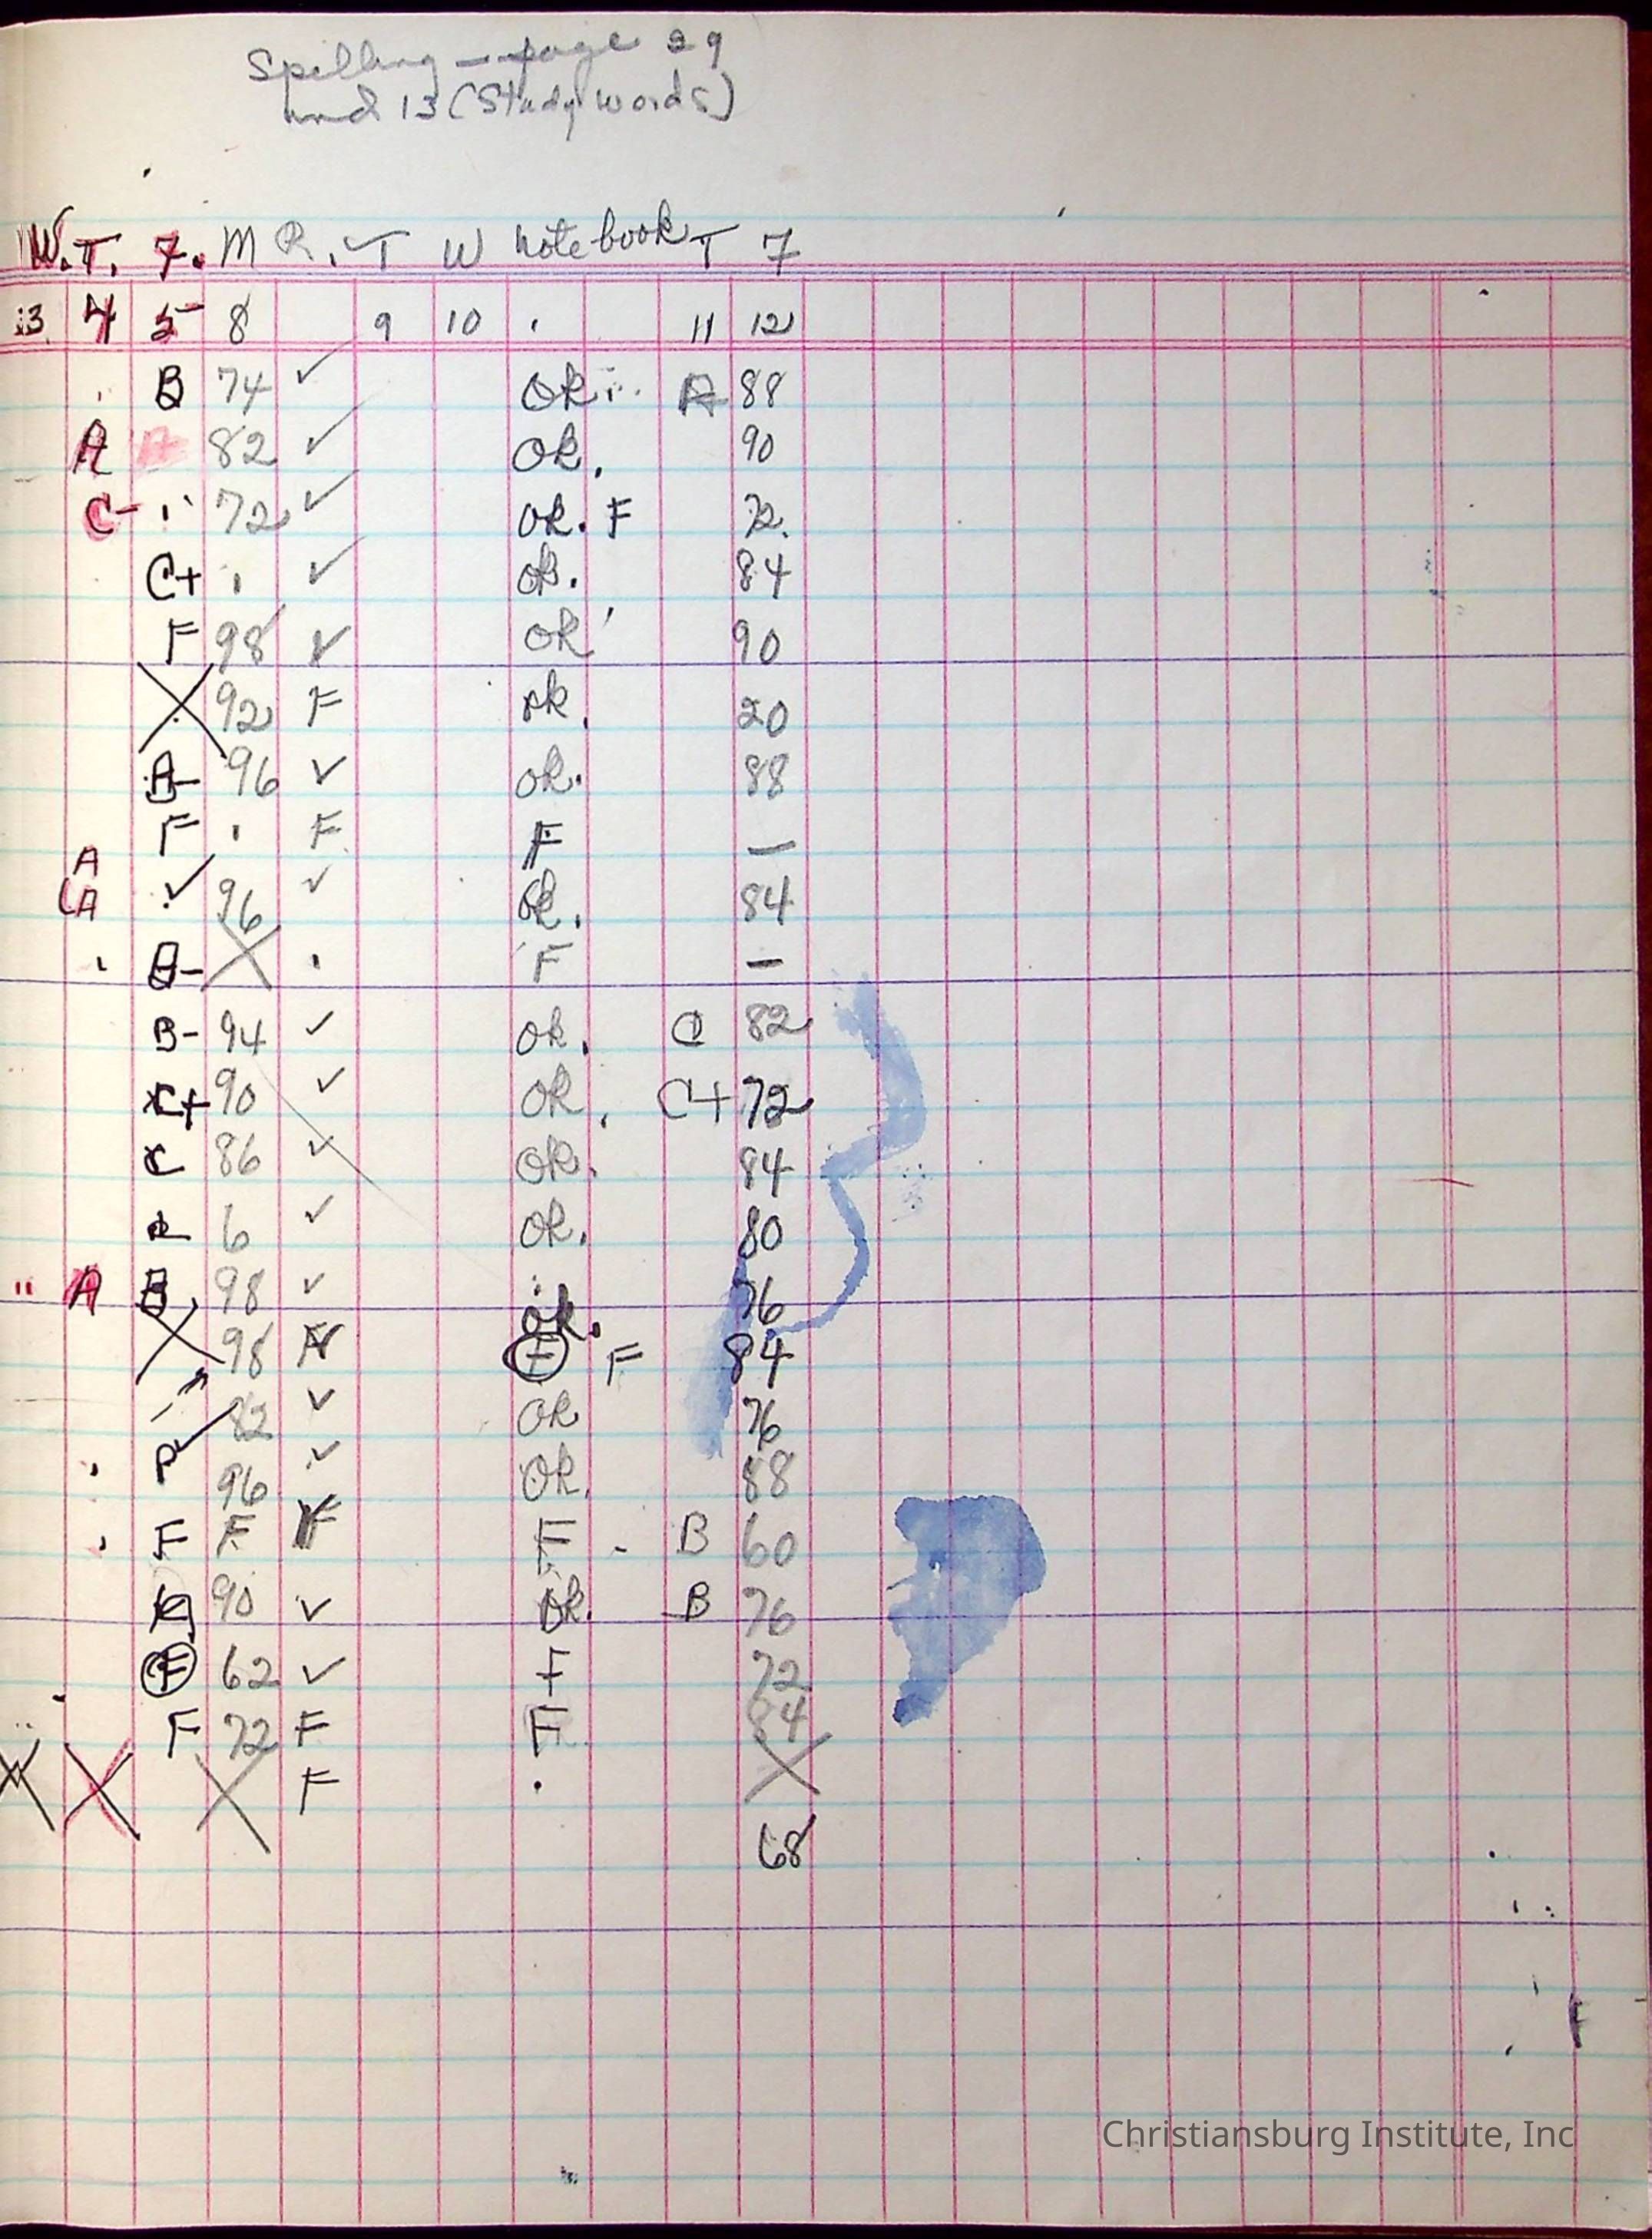 Spelling — page 29
and 13 (Study words)
W. T. 7. M R. T W notebook T 7
3 4 5 8 9 10 11 12
B 74 ✓ OK A 88
A A 82 ✓ OK. 90
C- 72 ✓ OK. F 72.
C+ ✓ OK. 84
F 98 ✓ OK 90
X 92 F OK. 20
A- 96 ✓ OK. 88
F F F —
A
A ✓ 96 ✓ OK. 84
B- X F —
B- 94 ✓ OK. C 82
C+ 90 ✓ OK. C+ 72
C 86 ✓ OK. 84
6 ✓ OK. 80
" A B 98 ✓ OK. 76
X 98 F F 84
82 ✓ OK 76
P ✓ 96 ✓ OK. 88
F F F F - B 60
90 ✓ OK. B 76
F 62 ✓ F 72
F 72 F F 84
X X X F X
68
Christiansburg Institute, Inc